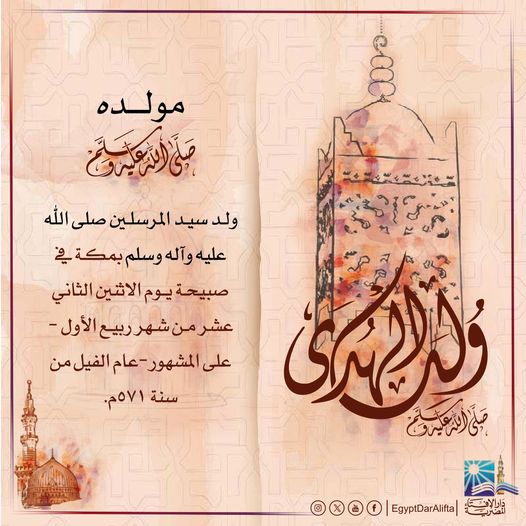 مولده
صلى الله عليه وسلم
ولد سيد المرسلين صلى الله
عليه وآله وسلم بمكة في
صبيحة يوم الاثنين الثاني
عشر من شهر ربيع الأول -
على المشهور-عام الفيل من
سنة ٥٧١م.
وُلِدَ الهُدى
صلى الله عليه وسلم
EgyptDarAlifta
دار الإفتاء
المصرية